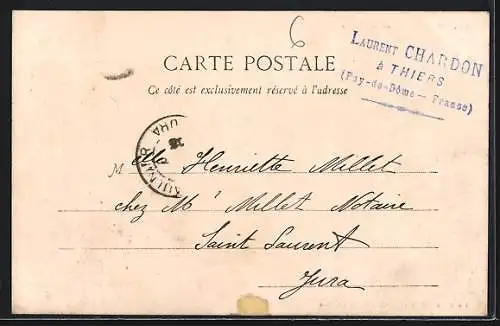 6
LAURENT CHARDON
à THIERS
(Puy-de-Dôme — France)
CARTE POSTALE
Ce côté est exclusivement réservé à l'adresse
Mlle Henriette Millet
chez Mr Millet Notaire
Saint Laurent
Jura